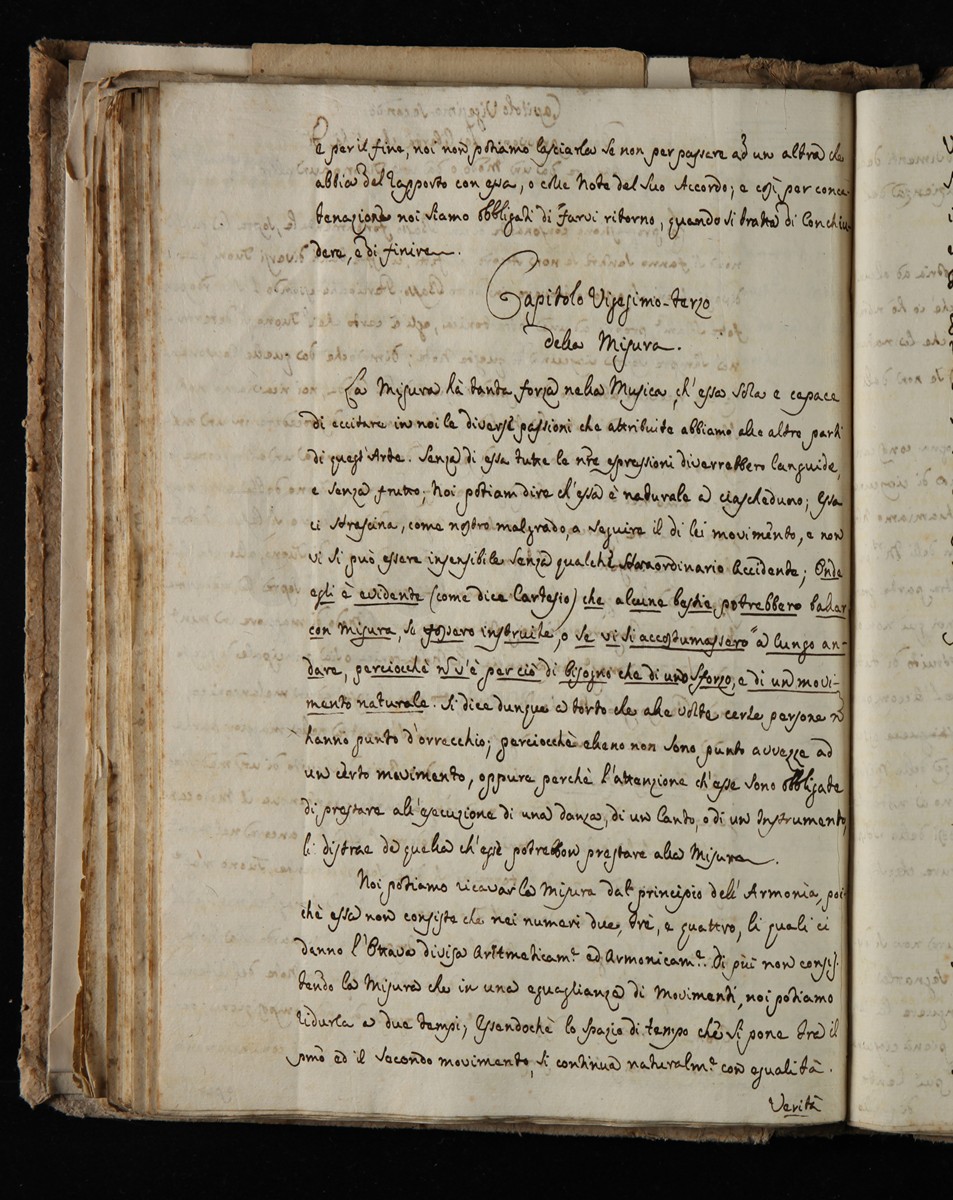 e per il fine, noi non potiamo lasciarla se non per passare ad un altra che
abbia del rapporto con essa, o colle Note del suo Accordo; e così per conca-
tenazione noi siamo obbligati di farvi ritorno, quando si tratta di Conchiu-
dere, e di finire.
Capitolo Vigesimo-terzo
della Misura.
La Misura hà tanta forza nella Musica, ch'essa sola e capace
di eccitare in noi le diverse passioni che attribuite abbiamo alle altre parti
di quest'Arte. Senza di essa tutte le nre espressioni diverrebbero languide,
e senza frutto; Noi potiam dire ch'essa è naturale a ciascheduno; Essa
ci strascina, come nostro malgrado, a seguire il di lei movimento, e non
vi si può essere insensibile senza qualche straordinario accidente; Onde
egli è evidente (come dice Cartesio) che alcune bestie potrebbero ballar
con Misura, se fossero instruite, o se vi si accostumassero a lungo an-
dare, perciocchè n v'è per ciò di bisogno che di uno sforzo, e di un movi-
mento naturale. Si dice dunque a torto che alle volte certe persone n
hanno punto d'orrecchio; perciocchè elleno non sono punto avvezze ad
un certo movimento, oppure perchè l'attenzione ch'esse sono obbligate
di prestare all'esecuzione di una danza, di un Canto, o di un Instrumento,
li distrae da quella ch'esse potrebbon prestare alla Misura.
Noi potiamo ricavar la Misura dal principio dell'Armonia, poi
chè essa non consiste che nei numeri due, trè, e quattro, li quali ci
danno l'Ottava divisa Aritmeticam.e ed Armonicam.e. Di più non consis-
tendo la Misura che in una eguaglianza di Movimenti, noi potiamo
ridurla a due tempi; Essendochè lo spazio di tempo che si pone tra il
pmo ed il secondo movimento, si continua naturalm.e con egualità.
Verità